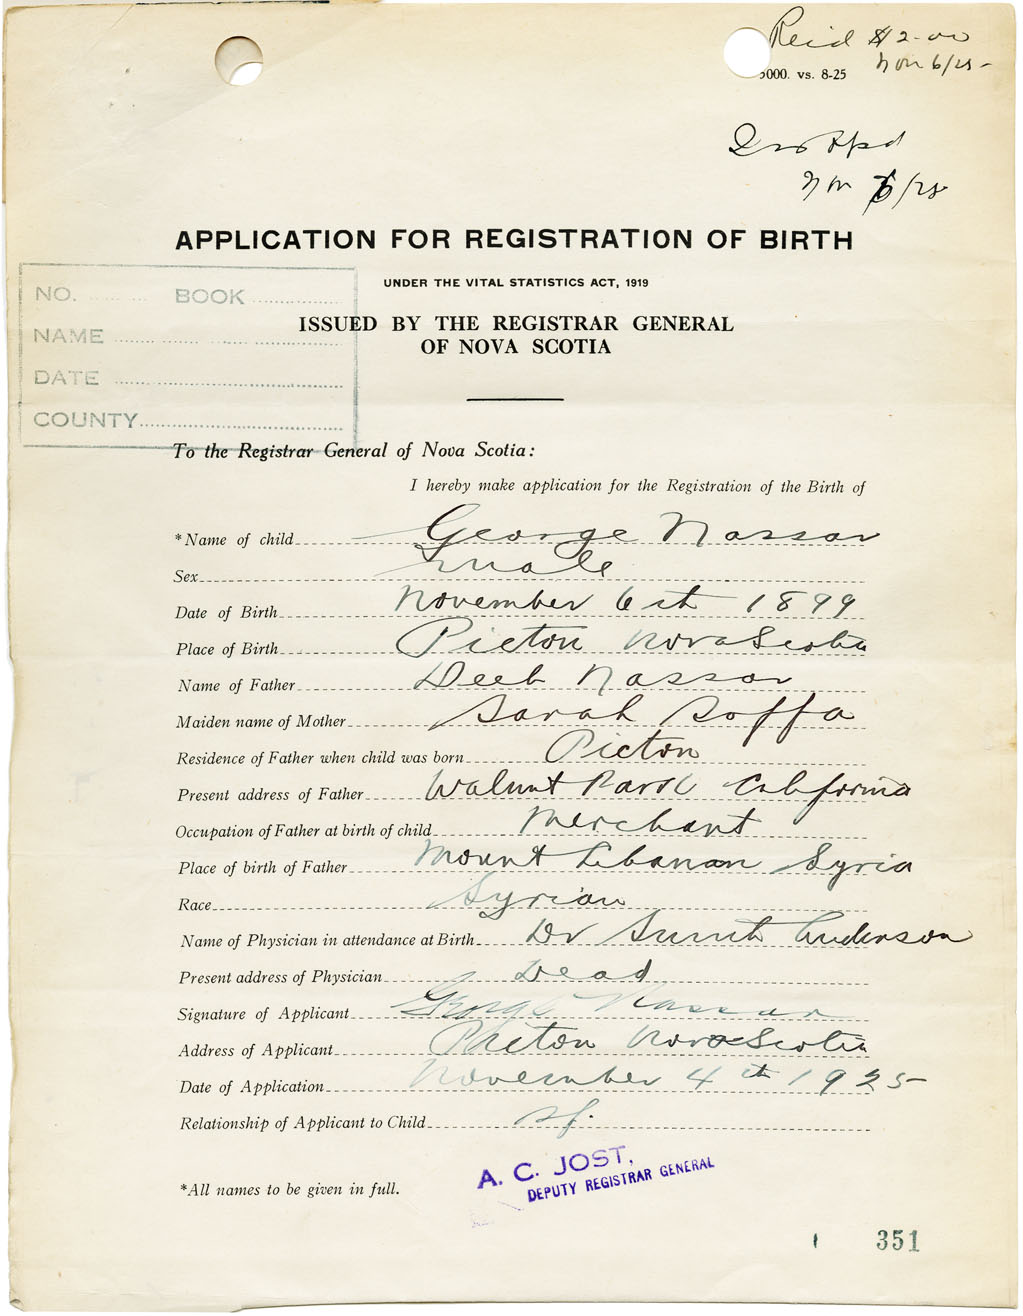 Rec'd $2.00
Nov 6/25-
5000. vs. 8-25
Nov 6/25
APPLICATION FOR REGISTRATION OF BIRTH
UNDER THE VITAL STATISTICS ACT, 1919
ISSUED BY THE REGISTRAR GENERAL
OF NOVA SCOTIA
NO. BOOK
NAME
DATE
COUNTY
To the Registrar General of Nova Scotia:
I hereby make application for the Registration of the Birth of
*Name of child George Nassar
Sex male
Date of Birth November 6th 1899
Place of Birth Pictou Nova Scotia
Name of Father Deeb Nassar
Maiden name of Mother Sarah Soffa
Residence of Father when child was born Pictou
Present address of Father Walnut Park California
Occupation of Father at birth of child Merchant
Place of birth of Father Mount Lebanan Syria
Race Syrian
Name of Physician in attendance at Birth Dr Anderson
Present address of Physician Dead
Signature of Applicant George Nassar
Address of Applicant Pictou Nova Scotia
Date of Application November 4th 1925
Relationship of Applicant to Child
A. C. JOST,
DEPUTY REGISTRAR GENERAL
*All names to be given in full.
351